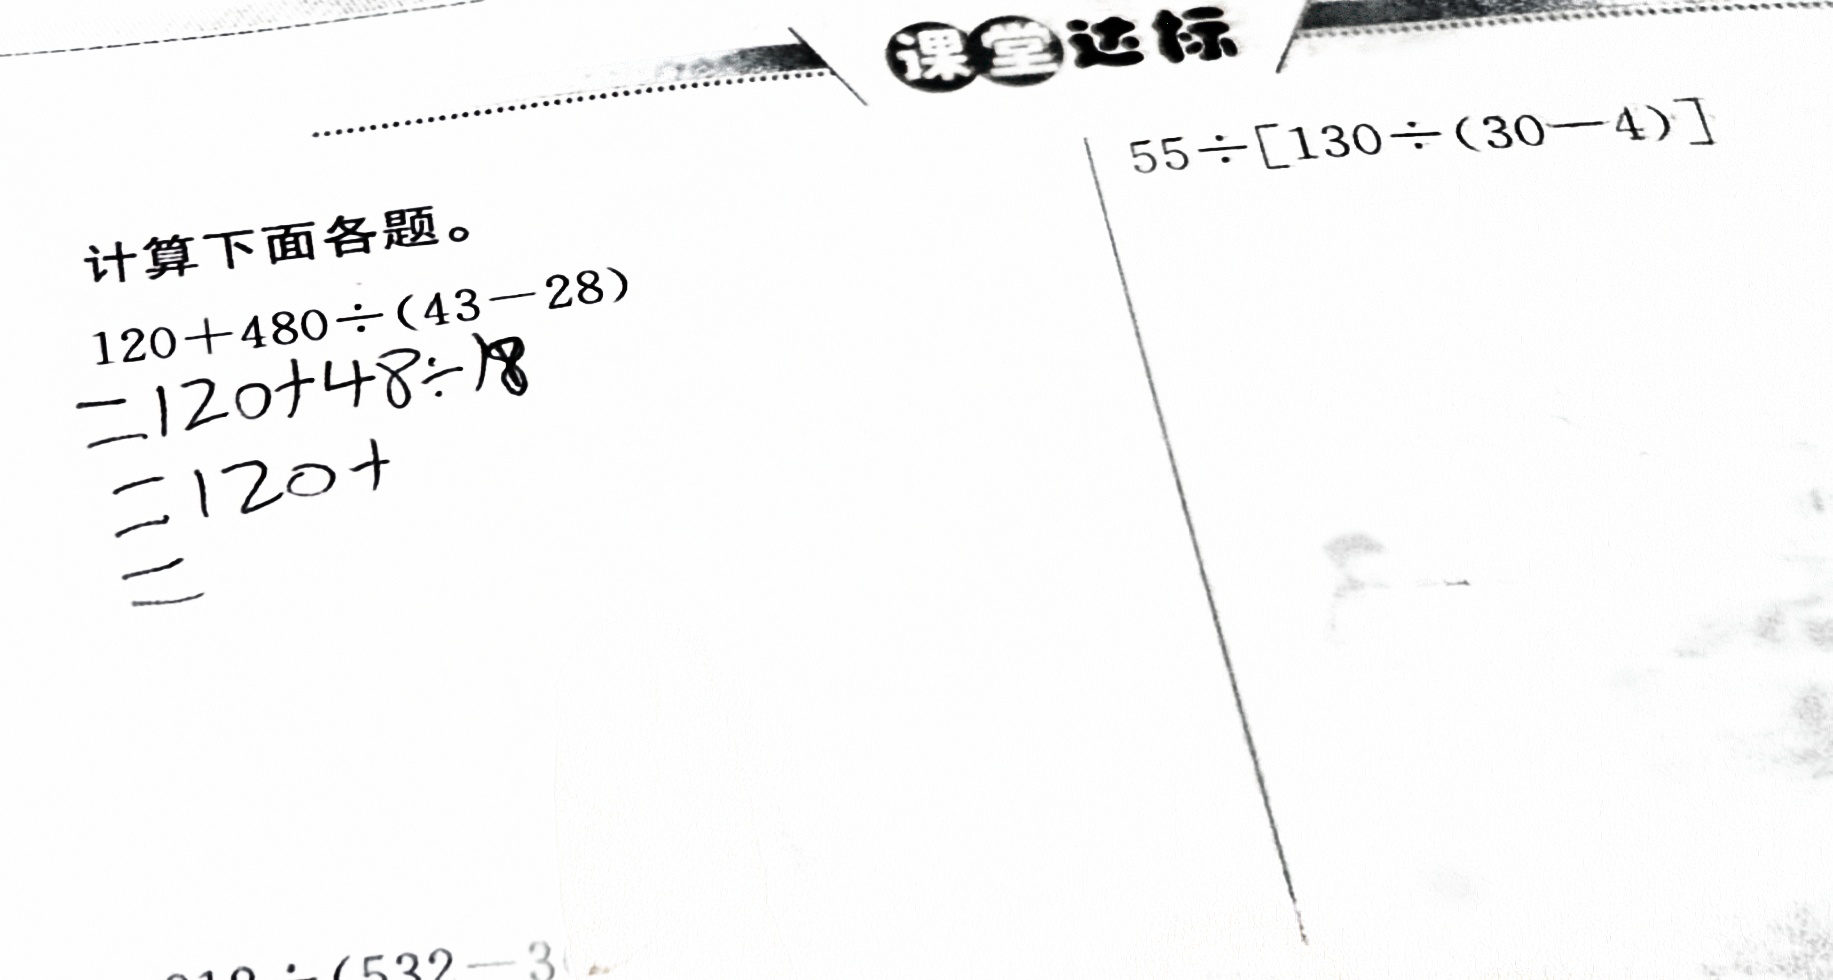 课堂达标
计算下面各题。
120+480÷(43-28)
=120+48÷18
=120+
=
55÷[130÷(30-4)]
÷(532-3